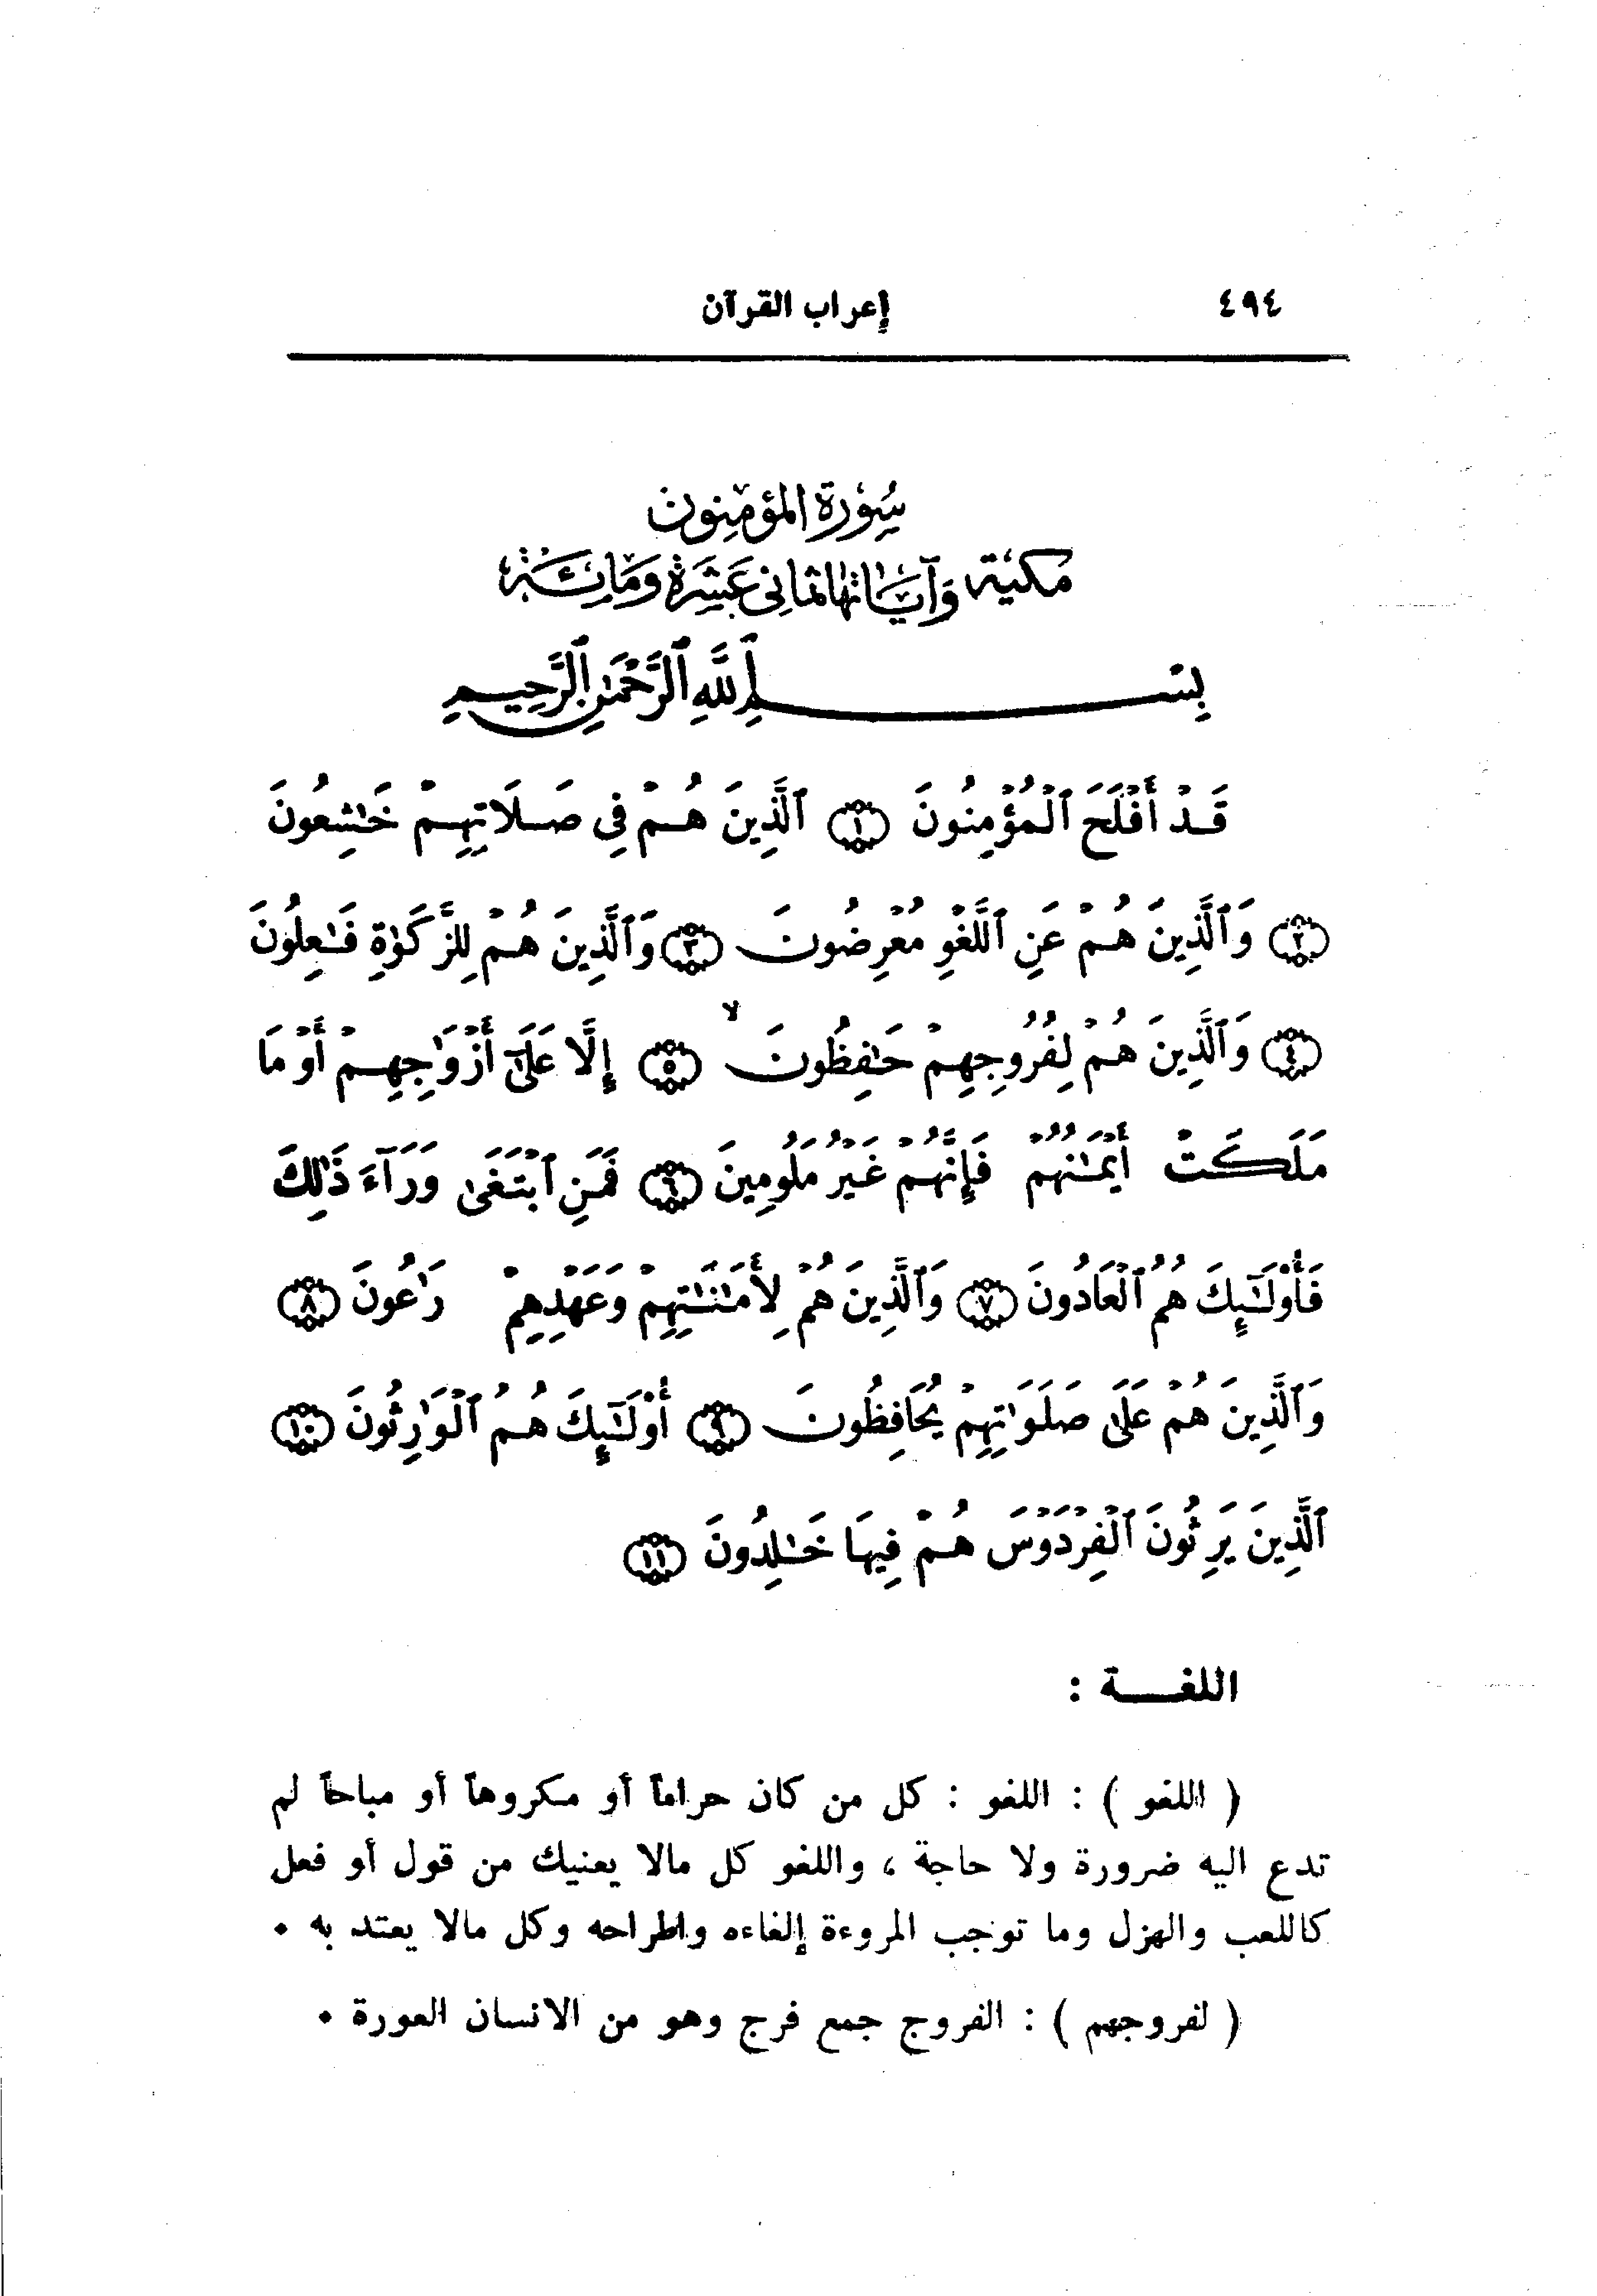 ٤٩٤
إعراب القرآن
سُورَة المؤمِنون
مكيّة وَآيَاتها ثماني عَشَرَة وَمَائَة
بِسْمِ ٱللَّهِ ٱلرَّحْمَٰنِ ٱلرَّحِيمِ
قَدْ أَفْلَحَ ٱلْمُؤْمِنُونَ ﴿١﴾ ٱلَّذِينَ هُمْ فِي صَلَاتِهِمْ خَٰشِعُونَ
﴿٢﴾ وَٱلَّذِينَ هُمْ عَنِ ٱللَّغْوِ مُعْرِضُونَ ﴿٣﴾ وَٱلَّذِينَ هُمْ لِلزَّكَوٰةِ فَٰعِلُونَ
﴿٤﴾ وَٱلَّذِينَ هُمْ لِفُرُوجِهِمْ حَٰفِظُونَ ۙ ﴿٥﴾ إِلَّا عَلَىٰٓ أَزْوَٰجِهِمْ أَوْ مَا
مَلَكَتْ أَيْمَٰنُهُمْ فَإِنَّهُمْ غَيْرُ مَلُومِينَ ﴿٦﴾ فَمَنِ ٱبْتَغَىٰ وَرَآءَ ذَٰلِكَ
فَأُوْلَٰٓئِكَ هُمُ ٱلْعَادُونَ ﴿٧﴾ وَٱلَّذِينَ هُمْ لِأَمَٰنَٰتِهِمْ وَعَهْدِهِمْ رَٰعُونَ ﴿٨﴾
وَٱلَّذِينَ هُمْ عَلَىٰ صَلَوَٰتِهِمْ يُحَافِظُونَ ﴿٩﴾ أُوْلَٰٓئِكَ هُمُ ٱلْوَٰرِثُونَ ﴿١٠﴾
ٱلَّذِينَ يَرِثُونَ ٱلْفِرْدَوْسَ هُمْ فِيهَا خَٰلِدُونَ ﴿١١﴾
اللغـــة :
( اللغو ) : اللغو : كل من كان حراماً أو مكروهاً أو مباحاً لم
تدع اليه ضرورة ولا حاجة ، واللغو كل مالا يعنيك من قول أو فعل
كاللعب والهزل وما توجب المروءة إلغاءه واطراحه وكل مالا يعتد به .
( لفروجهم ) : الفروج جمع فرج وهو من الانسان العورة .